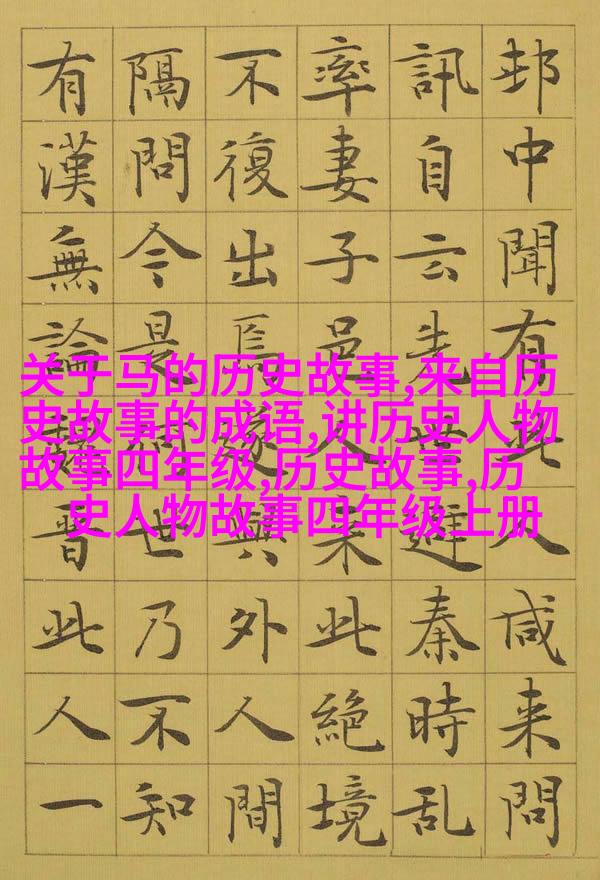 邨中聞有此人咸来問
訊自云先世避秦時乱
率妻子邑人来此絶境
不復出焉遂與外人間
隔問今是何世乃不知
有漢無論魏晉此人一
关于马的历史故事,来自历
史故事的成语,讲历史人物
故事四年级,历史故事,历
史人物故事四年级上册